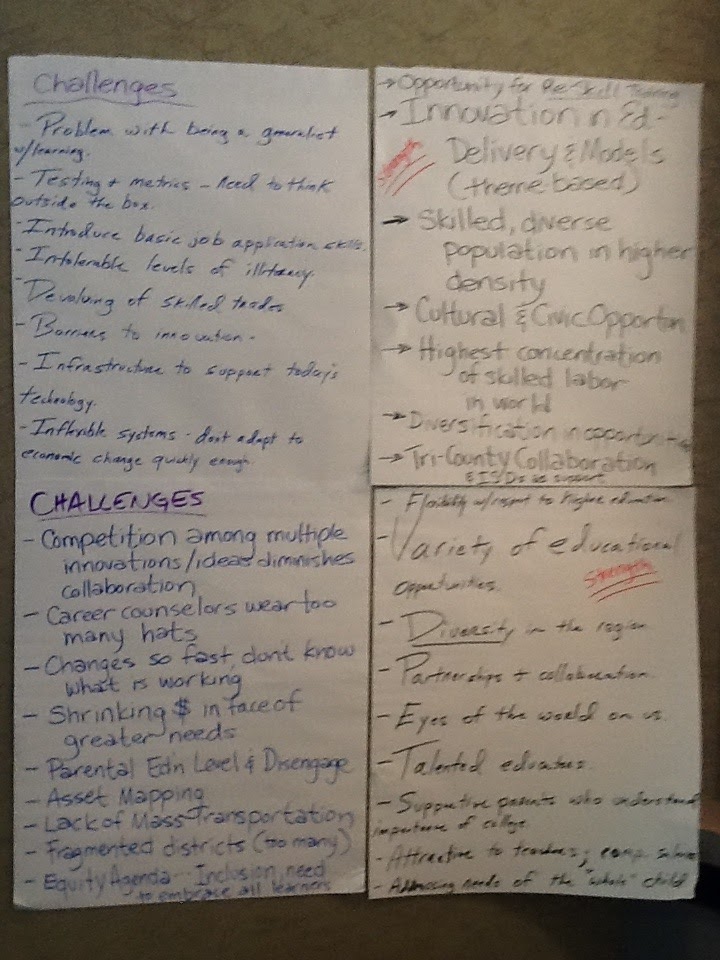 Challenges
- Problem with being a generalist
w/learning.
- Testing + metrics - Need to think
outside the box.
- Introduce basic job application skills.
- Intolerable levels of illiteracy.
- Devaluing of skilled trades
- Barriers to innovation -
- Infrastructure to support today's
technology.
- Inflexible systems - don't adapt to
economic change quickly enough.
CHALLENGES
- Competition among multiple
innovations/ideas diminishes
collaboration
- Career counselors wear too
many hats
- Changes so fast, don't know
what is working
- Shrinking $ in face of
greater needs
- Parental Ed'n Level & Disengage
- Asset Mapping
- Lack of Mass Transportation
- Fragmented districts (too many)
- Equity Agenda -- Inclusion, need
to embrace all learners
→ Opportunity for Re-Skill Training
→ Innovation in Ed-
Strength
Delivery & Models
(theme-based)
→ Skilled, diverse
population in higher
density
→ Cultural & Civic Opportun
→ Highest concentration
of skilled labor
in world
→ Diversification in opportunities
→ Tri-County Collaboration
& ISDs as support
- Flexibility w/respect to higher education
- Variety of educational
opportunities.
Strength
- Diversity in the region
- Partnerships + collaboration.
- Eyes of the world on us.
- Talented educators.
- Supportive parents who understand
importance of college.
- Attractive to teachers; comp. salaries
- Addressing needs of the "whole" child